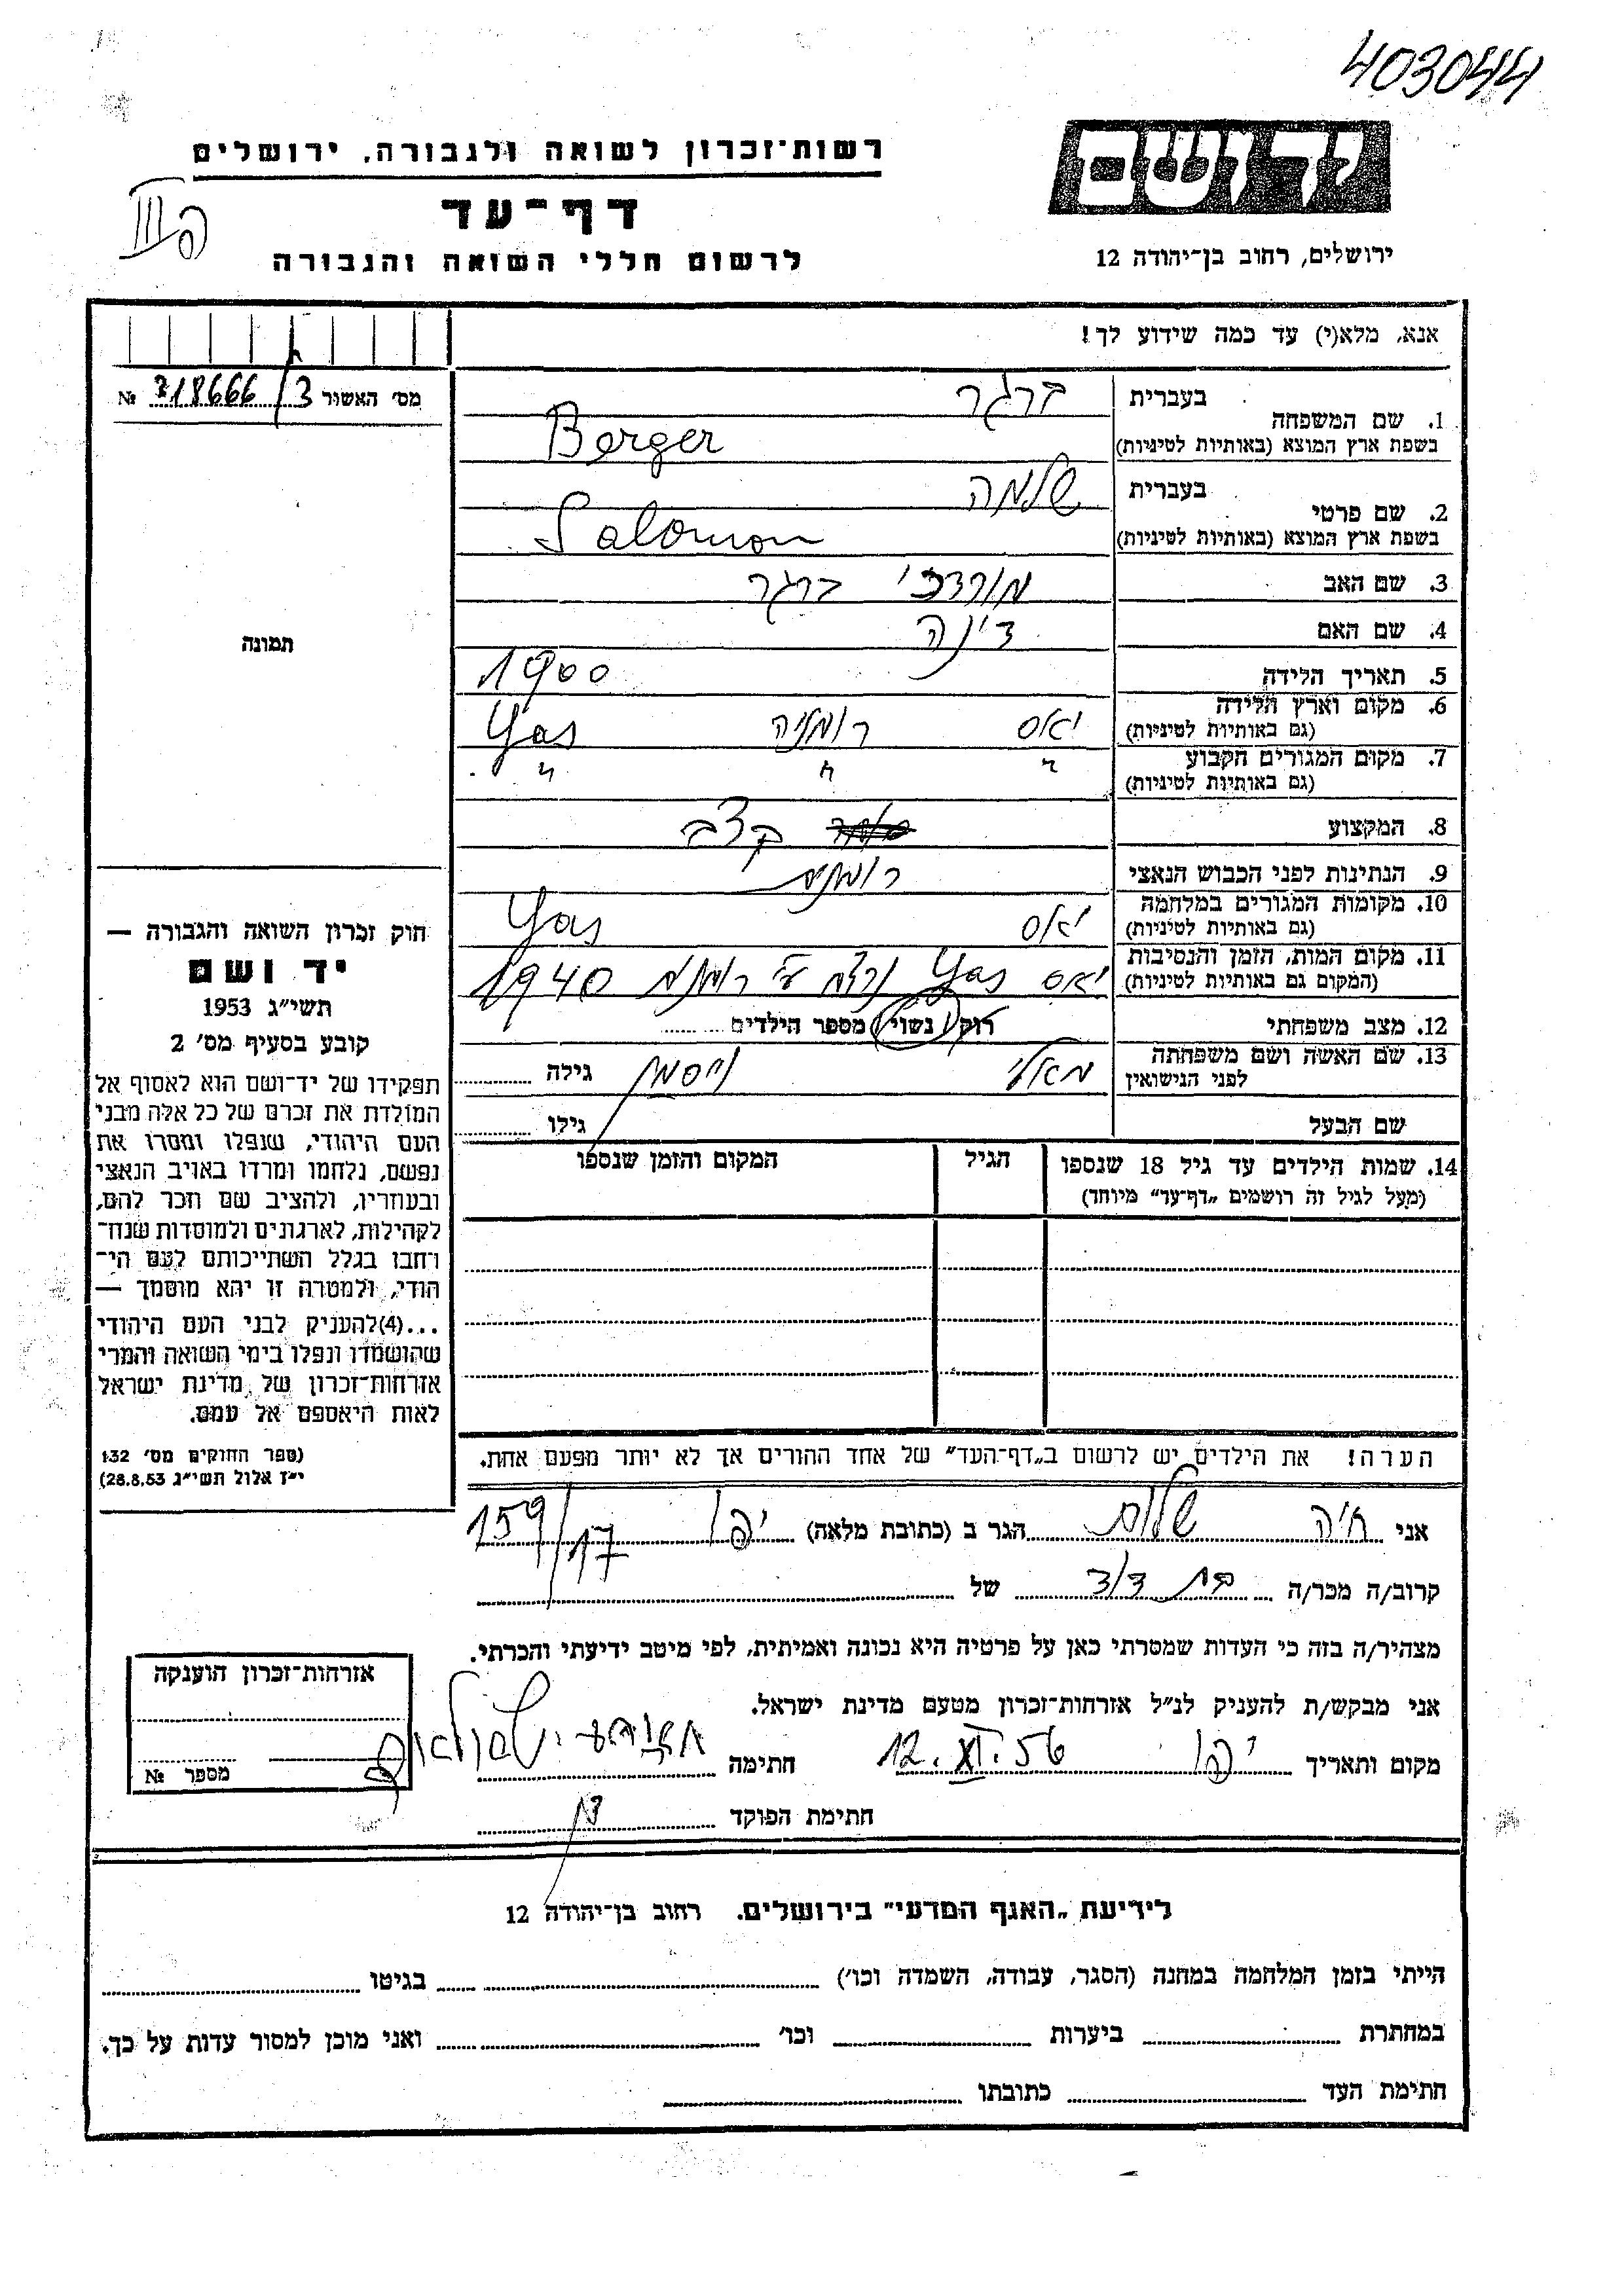 403044
רשות־זכרון לשואה ולגבורה, ירושלים
יד ושם
דף־עד
לרשום חללי השואה והגבורה
ירושלים, רחוב בן־יהודה 12
אנא, מלא(י) עד כמה שידוע לך!
מס׳ האשור 318666/3 №
1. שם המשפחה בעברית ברגר
בשפת ארץ המוצא (באותיות לטיניות) Berger
2. שם פרטי בעברית שלמה
בשפת ארץ המוצא (באותיות לטיניות) Salomon
3. שם האב מורדכי ברגר
4. שם האם דינה
5. תאריך הלידה 1900
6. מקום וארץ הלידה יאס רומניה Yas
(גם באותיות לטיניות)
7. מקום המגורים הקבוע " " "
(גם באותיות לטיניות)
8. המקצוע קצב
9. הנתינות לפני הכבוש הנאצי רומנית
10. מקומות המגורים במלחמה יאס Yas
(גם באותיות לטיניות)
11. מקום המות, הזמן והנסיבות יאס Yas נרצח ע״י רומנים 1940
(המקום גם באותיות לטיניות)
12. מצב משפחתי רוק/ נשוי/ מספר הילדים
13. שם האשה ושם משפחתה מאלי וייסמן גילה
לפני הנישואין
שם הבעל גילו
14. שמות הילדים עד גיל 18 שנספו הגיל המקום והזמן שנספו
(מעל לגיל זה רושמים „דף־עד" מיוחד)
הערה! את הילדים יש לרשום ב„דף־העד" של אחד ההורים אך לא יותר מפעם אחת.
תמונה
חוק זכרון השואה והגבורה —
יד ושם
תשי״ג 1953
קובע בסעיף מס׳ 2
תפקידו של יד־ושם הוא לאסוף אל
המולדת את זכרם של כל אלה מבני
העם היהודי, שנפלו ומסרו את
נפשם, נלחמו ומרדו באויב הנאצי
ובעוזריו, ולהציב שם וזכר להם,
לקהילות, לארגונים ולמוסדות שנח־
רחבו בגלל השתייכותם לעם הי־
הודי, ולמטרה זו יהא מוסמך —
...(4)להעניק לבני העם היהודי
שהושמדו ונפלו בימי השואה והמרי
אזרחות־זכרון של מדינת ישראל
לאות היאספם אל עמם.
(ספר החוקים מס׳ 132
י״ז אלול תשי״ג 28.8.53)
אני חיה שלום הגר ב (כתובת מלאה) יפו 159/17
קרוב/ה מכר/ה בת דוד של
מצהיר/ה בזה כי העדות שמסרתי כאן על פרטיה היא נכונה ואמיתית, לפי מיטב ידיעתי והכרתי.
אני מבקש/ת להעניק לנ״ל אזרחות־זכרון מטעם מדינת ישראל.
מקום ותאריך יפו 12.XI.56 חתימה
חתימת הפוקד
אזרחות־זכרון הוענקה
מספר №
לידיעת „האגף המדעי" בירושלים, רחוב בן־יהודה 12
הייתי בזמן המלחמה במחנה (הסגר, עבודה, השמדה וכו׳) בגיטו
במחתרת ביערות וכו׳ ואני מוכן למסור עדות על כך.
חתימת העד כתובתו